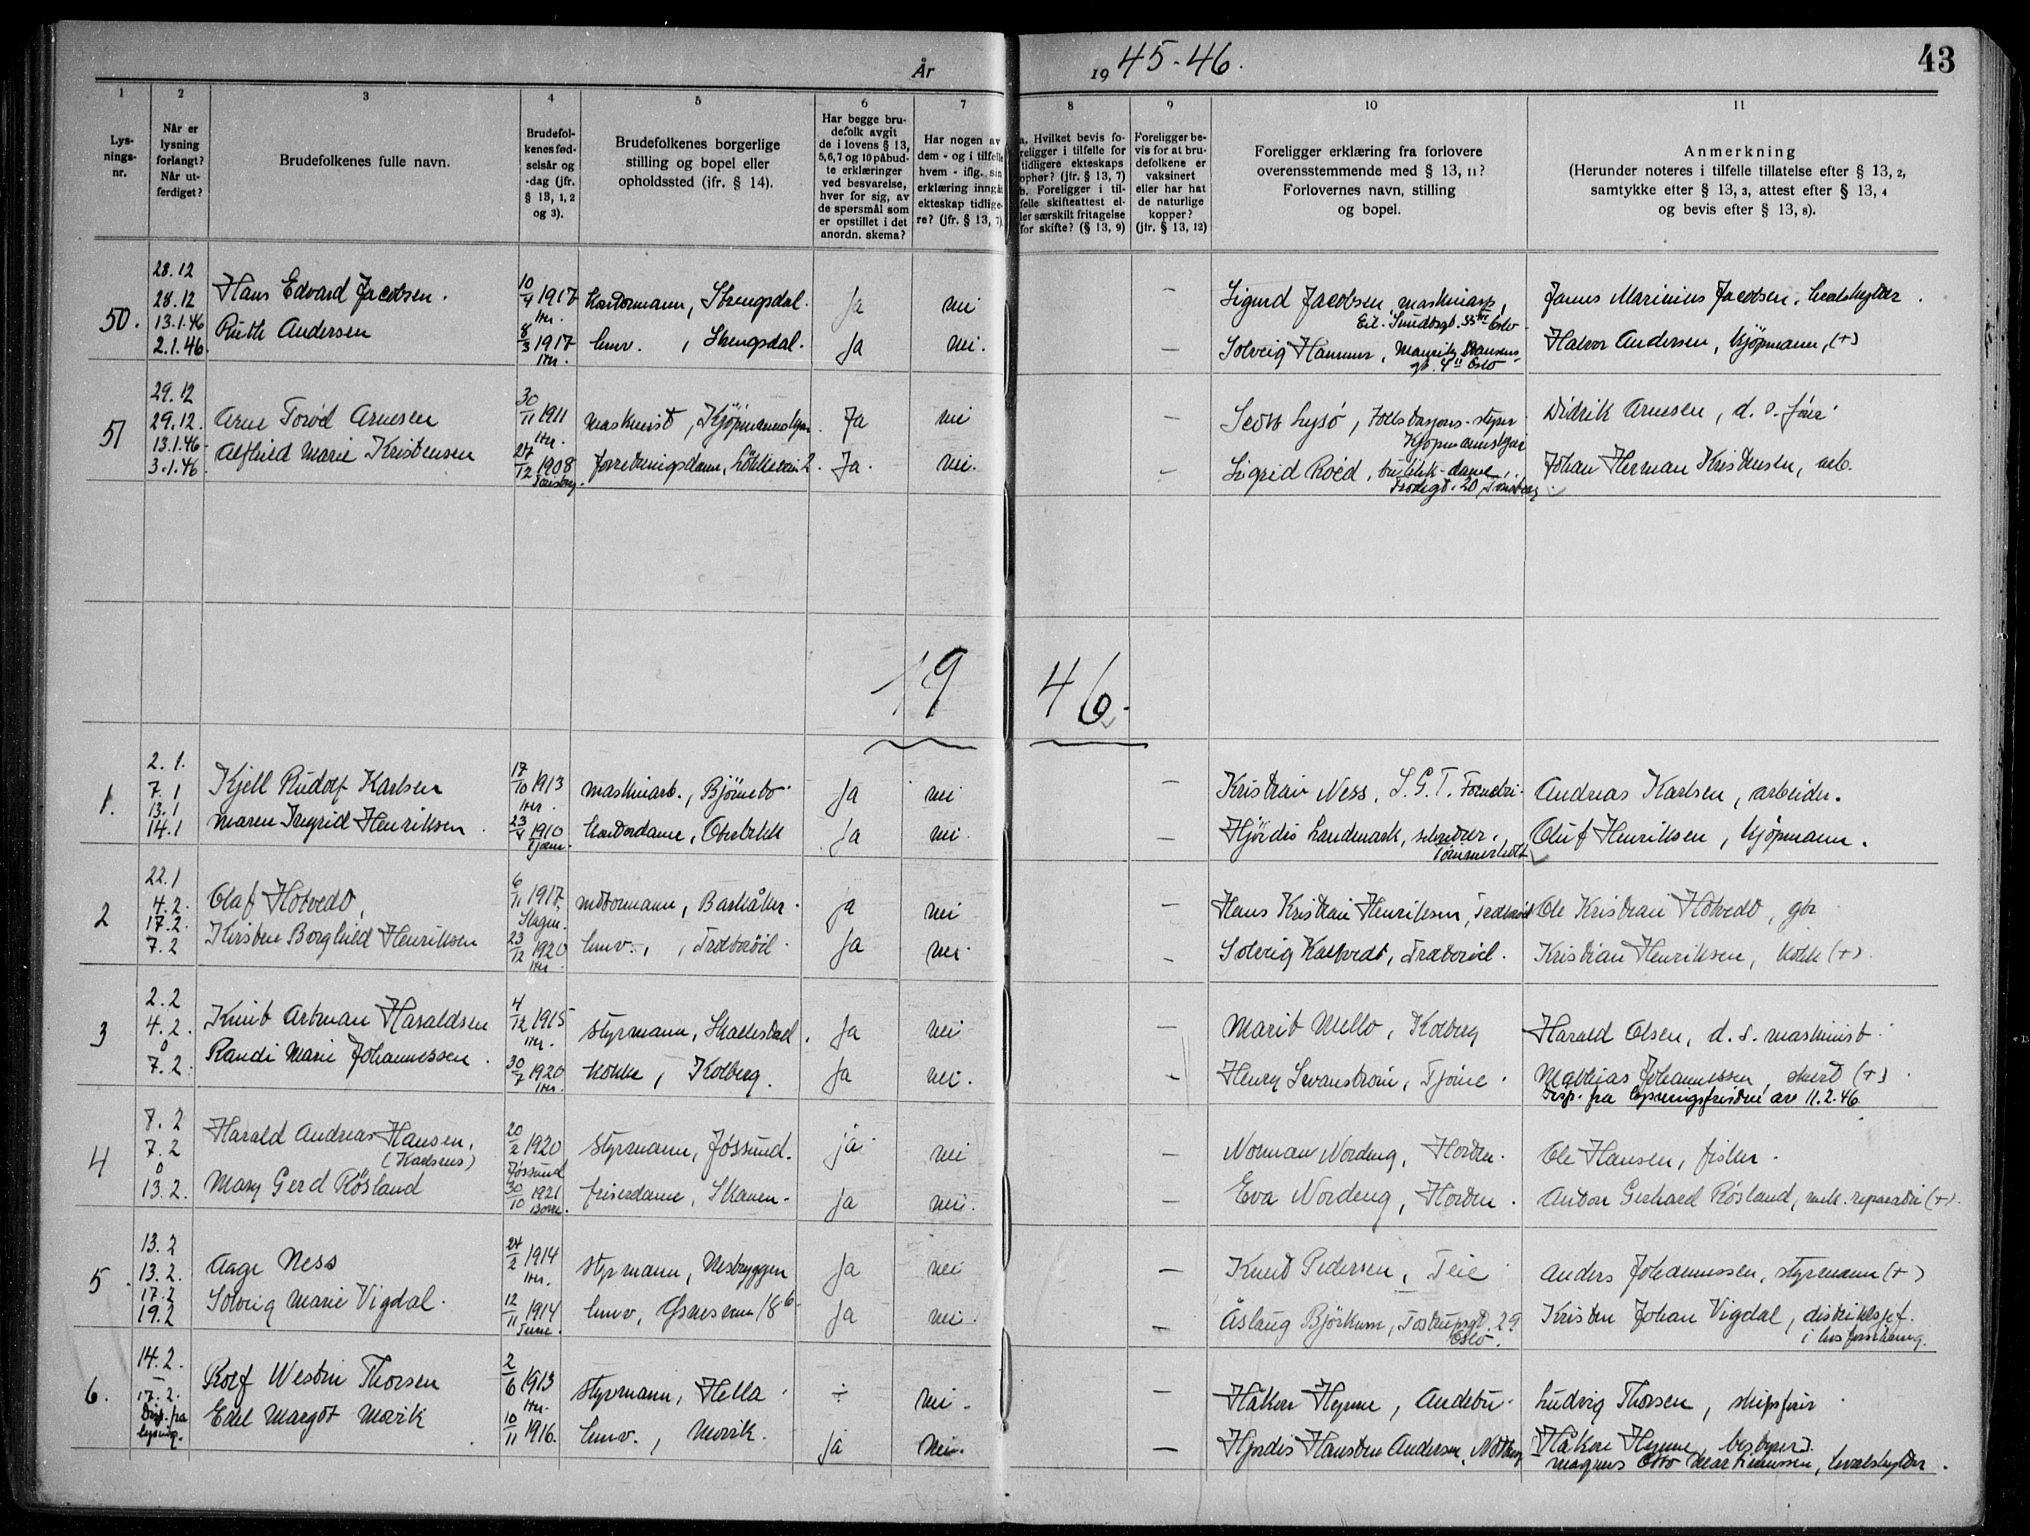 År 1945-46.
43
1
2
3
4
5
6
7
8
9
10
11
Lys-
nings-
nr.
Når er
lysning
forlangt?
Når ut-
ferdiget?
Brudefolkenes fulle navn.
Brudefol-
kenes fød-
selsår og
-dag (jfr.
§ 13, 1, 2
og 3).
Brudefolkenes borgerlige
stilling og bopel eller
opholdssted (ifr. § 14).
Har begge bru-
defolk avgit
de i lovens § 13,
5, 6, 7 og 10 påbud-
te erklæringer
ved besvarelse,
hver for sig, av
de spørsmål som
er opstillet i det
anordn. skema?
Har nogen av
dem - og i tilfelle
hvem - iflg. sin
erklæring inngått
ekteskap tidlige-
re? (jfr. § 13, 7)
a. Hvilket bevis fo-
religger i tilfelle for
tidligere ekteskaps
ophør? (jfr. § 13, 7)
b. Foreligger i til-
felle skifteattest el-
ler særskilt fritagelse
for skifte? (§ 13, 9)
Foreligger be-
vis for at bru-
defolkene er
vaksinert
eller har hat
de naturlige
kopper?
(jfr. § 13, 12)
Foreligger erklæring fra forlovere
overensstemmende med § 13, 11?
Forlovernes navn, stilling
og bopel.
Anmerkning
(Herunder noteres i tilfelle tillatelse efter § 13, 2,
samtykke efter § 13, 3, attest efter § 13, 4
og bevis efter § 13, 8).
50.
28.12
28.12
13.1.46
2.1.46.
Hans Edvard Jacobsen.
Ruth Andersen
10/4 1917 Her.
8/3 1917 Her.
kontormann, Strengsdal.
husv. , Strengsdal.
Ja
Ja
nei
nei.
—
—
Sigurd Jacobsen, maskinasp,
Eil. Sundtsgt. 35 Oslo
Solveig Hammer, Mauritz Hansens
gt. 4 II Oslo
James Marinius Jacobsen, hvalskytter.
Halvor Andersen, kjøpmann, (+)
51
29.12
29.12.
13.1.46
3.1.46.
Arne Torød Arnesen
Alfhild Marie Kristensen
30/11 1911 Her.
27/12 1908 Tønsberg.
maskinist, Kjøpmannskjær
forretningsdame, Løkkevein 2.
Ja
Ja.
nei
nei.
—
—
Scott Lysø, tollstasjons-styrer
Kjøpmannskjær
Sigrid Roéd, butikk-dame,
Frodegt. 20, Tønsberg
Didrik Arnesen, d.s. fører
Johan Herman Kristensen, arb.
19 46.
1.
2.1.
7.1
13.1
14.1
Kjell Rudolf Karlsen
Maren Ingrid Henriksen.
17/10 1913 Her.
23/4 1910 Tjøme.
maskinarb., Bjørnebo
kontordame, Oterbekk
Ja
Ja
nei
nei
—
—
Kristian Ness, S.G.T. Fornebu
Hjørdis Landmark, sekretær,
Tømmerholt
Andreas Karlsen, arbeider.
Oluf Henriksen, kjøpmann.
2
22.1
4.2.
17.2.
7.2
Olaf Hotvedt,
Kirsten Borghild Henriksen
6/11 1917. Slagen.
23/12 1920 Her.
motormann, Barkåker.
husv., , Træborvil.
ja
Ja
nei
nei
—
-
Hans Kristian Henriksen, Træborvil
Solveig Kalkvedt, Træborvil.
Ole Kristian Hotvedt, gbr
Kristian Henriksen, kokk (+)
3
2.2
4.2.
0
7.2.
Knut Artman Haraldsen
Randi Marie Johannessen.
4/12 1915 Her.
30/7 1920 Her.
styrmann, Skallestad.
kokke, Kolberg.
Ja
Ja
nei
nei.
—
-
Marit Mello, Kolberg
Henry Svanstrøm, Tjøme.
Harald Olsen, d.s. maskinist
Mathias Johannessen, stuert (+)
Disp. fra lysningsfristen av 11.2.46
4
7.2
7.2
0
13.2.
Harald Andreas Hansen,
(Karlsens)
Mary Gerd Røsland
20/2 1920 Jøssund
30/10 1921 Borre.
styrmann, Jøssund.
friserdame, Skauen.
ja
Ja
nei
nei.
—
—
Norman Nordeng, Horten.
Eva Nordeng, Horten.
Ole Hansen, fisker.
Anton Gerhard Røsland, mek. reparatør (+).
5.
13.2
13.2.
17.2
19.2
Aage Ness
Solveig Marie Vigdal.
24/2 1914 Her.
12/11 1914 Tune.
styrmann, Nesbryggen
husv, Ørsnesveien 18b
Ja
Ja
nei
nei.
—
—
Knut Pedersen, Teie
Åslaug Bjørkum, Tostrupsgt. 29
Oslo.
Anders Johannessen, styrmann (+)
Kristen Johan Vigdal, distriktssjef.
i livsforsikring.
6.
14.2.
—
17.2.
Disp. fra
lysning.
Rolf Westin Thorsen
Edel Margot Mørik
2/6 1913 Her.
10/11 1916.
styrmann, Hella.
husv. , Mørik.
÷
ja
nei.
nei.
—
—
Håkon Hynne, Andebu.
Hjørdis Hansten Andersen, Nøtterøy
Ludvig Thorsen, skipsfører
[Håkon Hynne, bestyrer].
Magnus Otto Markussen, hvalskytter.